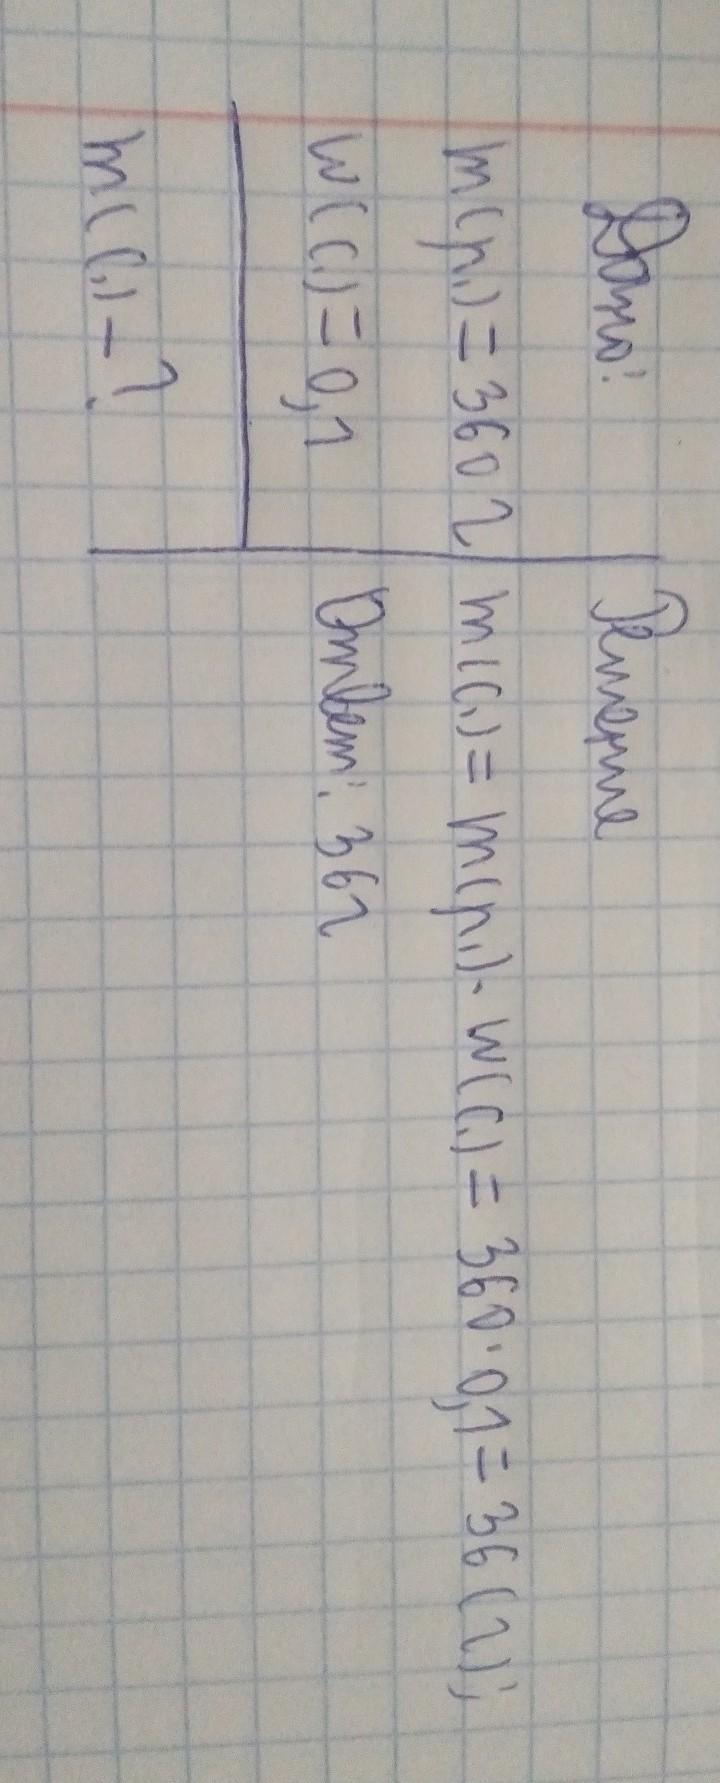 Дано:
m(р.) = 360 г
w(с.) = 0,1
m(с.) - ?
Решение
m(с.) = m(р.) · w(с.) = 360 · 0,1 = 36 (г);
Ответ: 36г